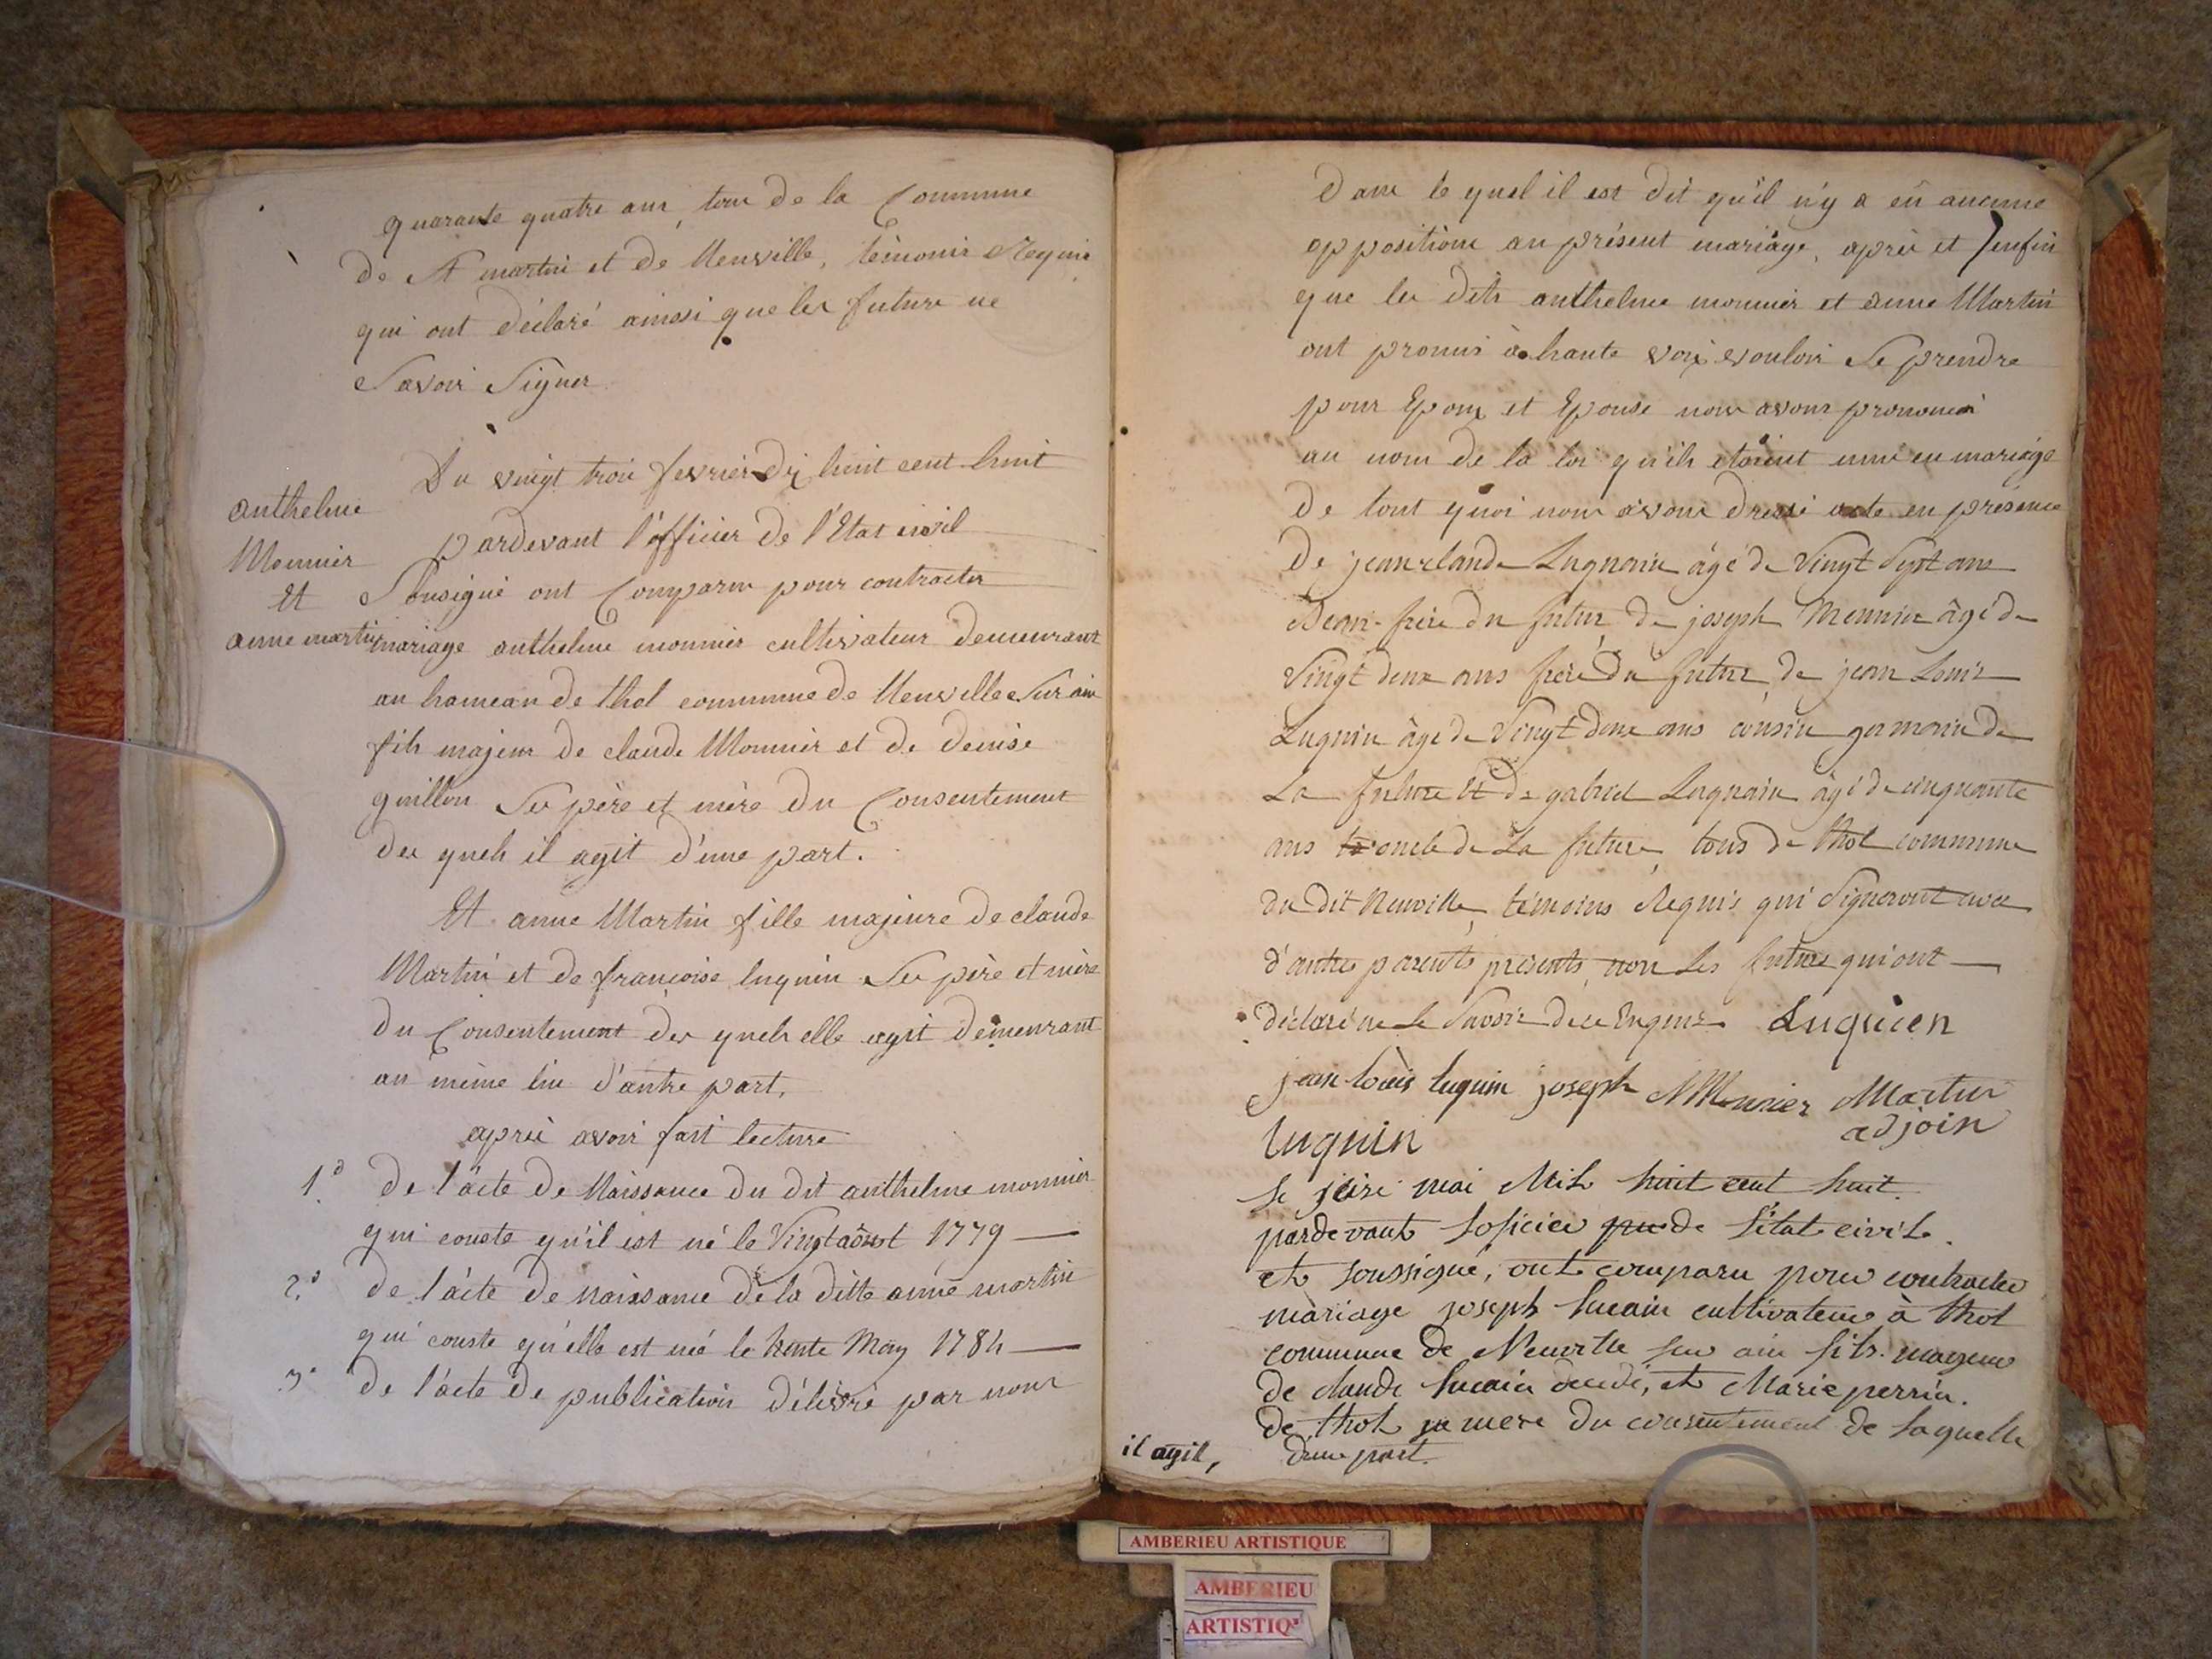 quarante quatre ans, tous de la Commune
de St martin et de Neuville, témoins Requis
qui ont déclaré ainsi que les futurs ne
Savoir Signer
Du vingt trois fevrier dix huit cent huit
anthelme
Monnier
Et
anne martin
pardevant l'officier de l'Etat civil
Sousigné ont Comparu pour contracter
mariage anthelme monnier cultivateur demeurant
au hameau de thol commune de Neuville Sur ain
fils majeur de claude Monnier et de denise
guillon Ses père et mère du Consentement
des quels il agit d'une part.
Et anne Martin fille majeure de claude
Martin et de françoise luquin Ses père et mère
du Consentement des quels elle agit demeurant
au même lieu d'autre part,
après avoir fait lecture
1.° de l'acte de Naissance du dit anthelme monnier
qui conste qu'il est né le Vingt août 1779
2.° de l'acte de naissance de la ditte anne martin
qui conste qu'elle est née le trente May 1784
3.° de l'acte de publication délivré par nous
Dans le quel il est dit qu'il n'y a eü aucune
oppositions au présent mariage, après et enfin
que les dits anthelme monnier et anne Martin
ont promis à haute voix vouloir Se prendre
pour Epoux et Epouse nous avons prononcé
au nom de la loi qu'ils etoient unis en mariage
De tout quoi nous avons dressé acte en présence
De jean claude Luquain âgé de Vingt Sept ans
Beau-frère du futur, de joseph Monnier âgé de
Vingt deux ans frere du futur, de jean Louis
Luquin âgé de Vingt deux ans cousin germain de
La future Et de gabriel Luquain âgé de cinquante
ans oncle de La future, tous de thol commune
du dit Neuville, témoins Requis qui Signeront avec
d'autres parents présents, non Les futurs qui ont
déclaré ne Le Savoir de ce Enquis Luquien
jean loüis luquin joseph Monnier Martin
adjoin
luquin
le mai Mil huit cent huit.
pardevant loficier de létat civil.
et soussigné, ont comparu pour contracter
màriage joseph lucain cultivateur à thol
commune de Neuville sur ain fils. mageur
de claude lucain decedé, et Marie perrin.
de thol sa mere du consentement de laquelle
il agit, dune part.
AMBERIEU ARTISTIQUE
AMBERIEU
ARTISTIQ